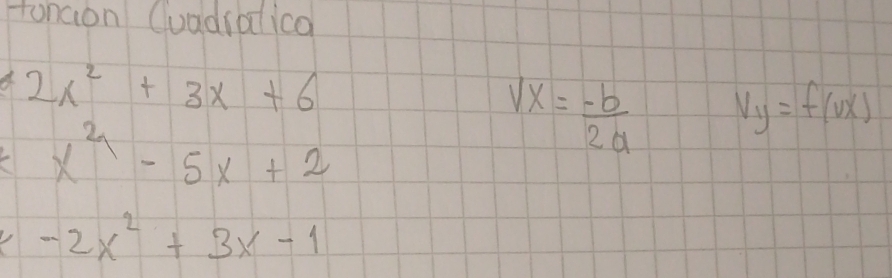 función Cuadratica
2x² + 3x + 6
x² - 5x + 2
-2x² + 3x - 1
Vx = -b/2a
Vy = f(vx)